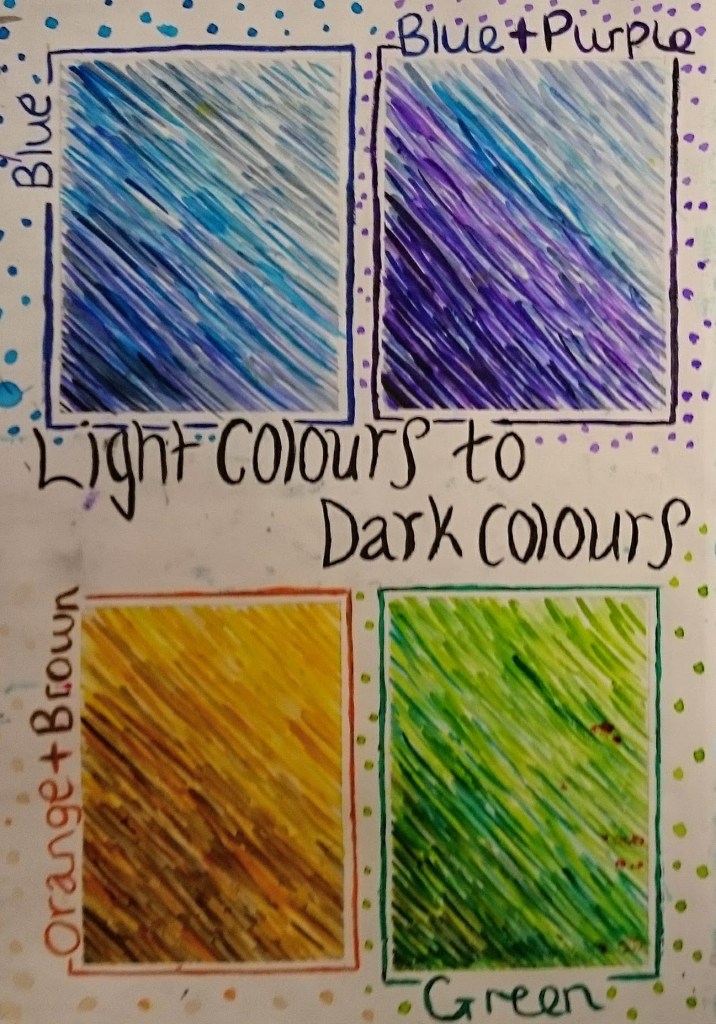 Blue
Blue+Purple
Light Colours to
Dark Colours
Orange+Brown
Green